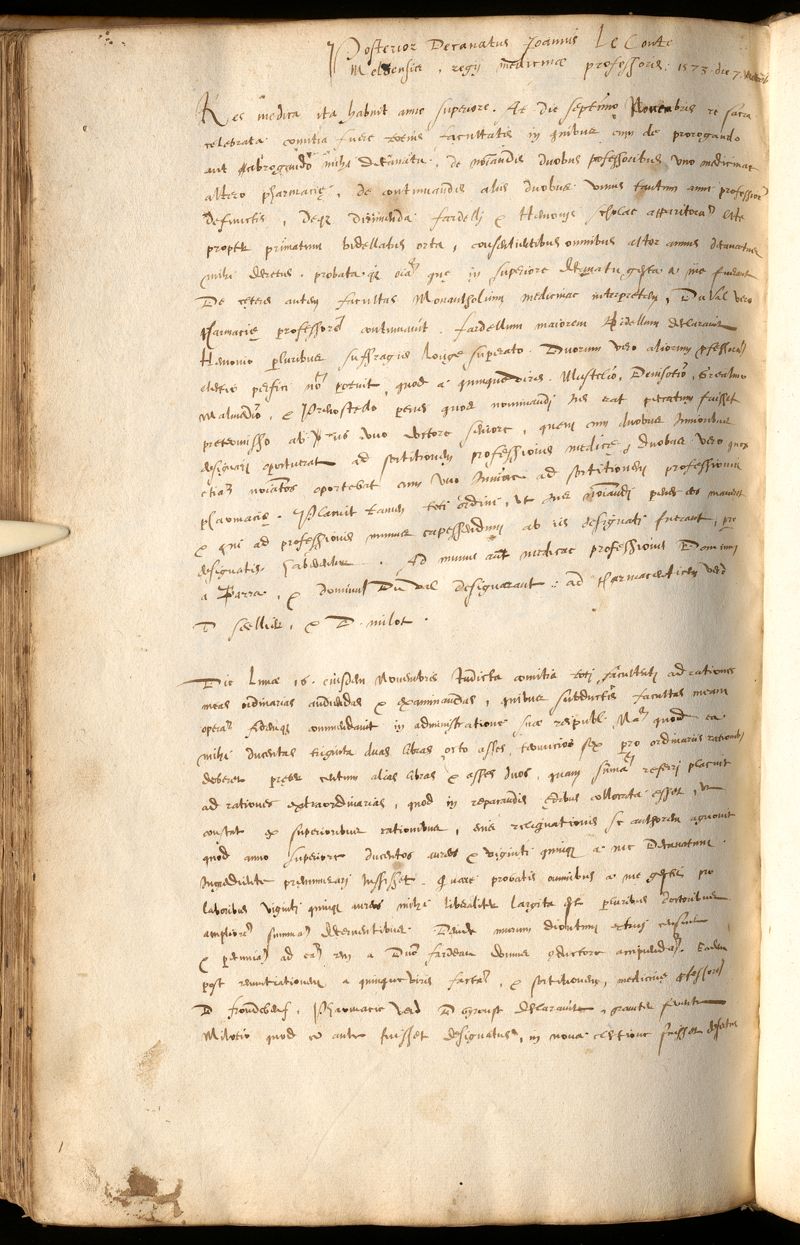 Posterior Decanatus Joannis Le Conte
Meldensis, regij medicinæ professoris: 1573 die 7
Res medica ita habuit anno superiore. At die septimo Novembris re sacra
celebrata comitia fuere totius facultatis in quibus cum de prorogando
aut abrogando mihi decanatu, de noiandis duobus professoribus, uno medicinae
altero pharmacię, de continuandis aliis duobus unius tantum anni professiõe
defunctis, deq; dirimenda fardelli & Henonis scholae apparitorũ lite
propter primatum bidellatus orta, consentientibus omnibus alter annus decanatus
mihi decretus. probata q; oĩa quę in superiore decanatu gesta a me fuerant
De ceteris autem facultas Monantholium medicinae interpretem, Du Val vero
pharmacię professorẽ continuavit. fardellum maiorem Bidellum declaravit
Henonio pluribus suffragiis longe superato. Duorum vero aliorum professorũ
electio perfici nõ potuit, quod a quinqueviris. Mustelio, Denisotio, Greaulmo
Malmedio, & Prevosteo penes quos nominandi ius erat peccatum fuisset
pretermisso ab iis uno doctore seniore, quem cum duobus iunioribus
designari oportuerat ad sortitionem professionis medicę, duobus vero quos
etiã noĩatos oportebat cum uno iuniore ad sortitionem professionis
pharmacię. Placuit tamen toti ordini, ut ius noĩandi penes eos maneret
& qui ad professionis munus capessendum ab iis designati fuerant, pro
designatis haberentur. Ad munus aut medicae professionis Dominum
a Parra, & dominum Du Val designarant: ad pharmaceuticem verò
D seellier, & D. milot.
Die Lunæ 16. eiusdem Novembris Indicta comitia toti facultati ad rationes
meas ordinarias audiendas & examinandas, quibus subductis facultas meam
operã fidemq; commendavit in administratione suæ reipubl. Nã quod ea
mihi ducentas triginta duas libras octo asses, teruncios sex pro ordinariis rationibus
deberet preter centum alias libras & asses duos, quam summã referri placuit
ad rationes extraordinarias, quod in reparandis ędibus collocata esset, ut
constat ex superioribus rationibus, eius resignationis se authorem agnovit
quod anno superiore ducentos aureos & viginti quinq; a me Decanatum
Ingrediente prenumerari iussisset. Quare probatis omnibus a me gestis pro
laboribus viginti quinq; aureos mihi liberaliter largita est pluribus doctoribus
ampliorẽ summã decernentibus. Deinde murum diontinum extrui censuit
& pecuniã ad eã rem a Dño fardeau domus conductore accipiendã. Eadem
post renuntiationem a quinqueviris factã, & sortitionem, medicinę professorẽ
D frondebeuf, Pharmacię verò D gyroust declaravit, graviter ferente
Milotio quod cũ ante fuisset designatus, in nova electione fuisset